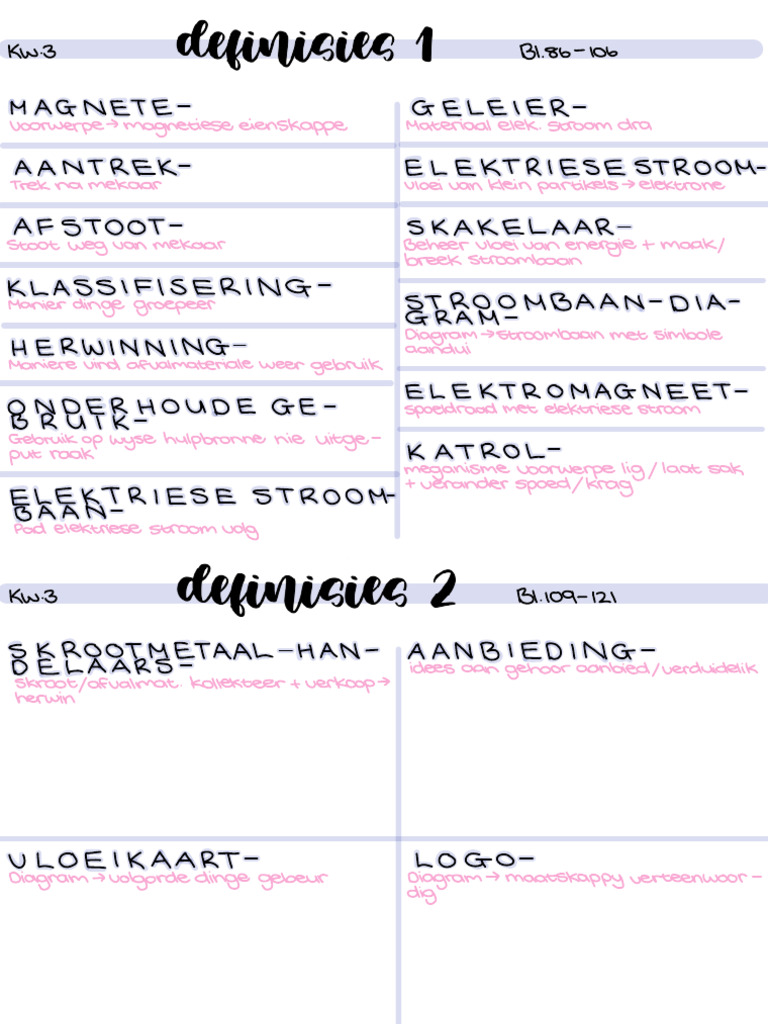 Kw.3 definisies 1 Bl.86-106
MAGNETE-
Voorwerpe → magnetiese eienskappe
AANTREK-
Trek na mekaar
AFSTOOT-
Stoot weg van mekaar
KLASSIFISERING-
Manier dinge groepeer
HERWINNING-
Maniere vind afvalmateriale weer gebruik
ONDERHOUDE GE-
BRUIK-
Gebruik op wyse hulpbronne nie uitge-
put raak
ELEKTRIESE STROOM-
BAAN-
Pad elektriese stroom volg
GELEIER-
Materiaal elek. stroom dra
ELEKTRIESE STROOM-
Vloei van klein partikels → elektrone
SKAKELAAR-
Beheer vloei van energie + maak/
breek stroombaan
STROOMBAAN-DIA-
GRAM-
Diagram → stroombaan met simbole
aandui
ELEKTROMAGNEET-
spoeldraad met elektriese stroom
KATROL-
meganisme voorwerpe lig/laat sak
+ verander spoed/krag
Kw.3 definisies 2 Bl.109-121
SKROOTMETAAL-HAN-
DELAARS-
Skroot/afvalmat. kollekteer + verkoop →
herwin
VLOEIKAART-
Diagram → volgorde dinge gebeur
AANBIEDING-
idees aan gehoor aanbied/verduidelik
LOGO-
Diagram → maatskappy verteenwoor-
dig